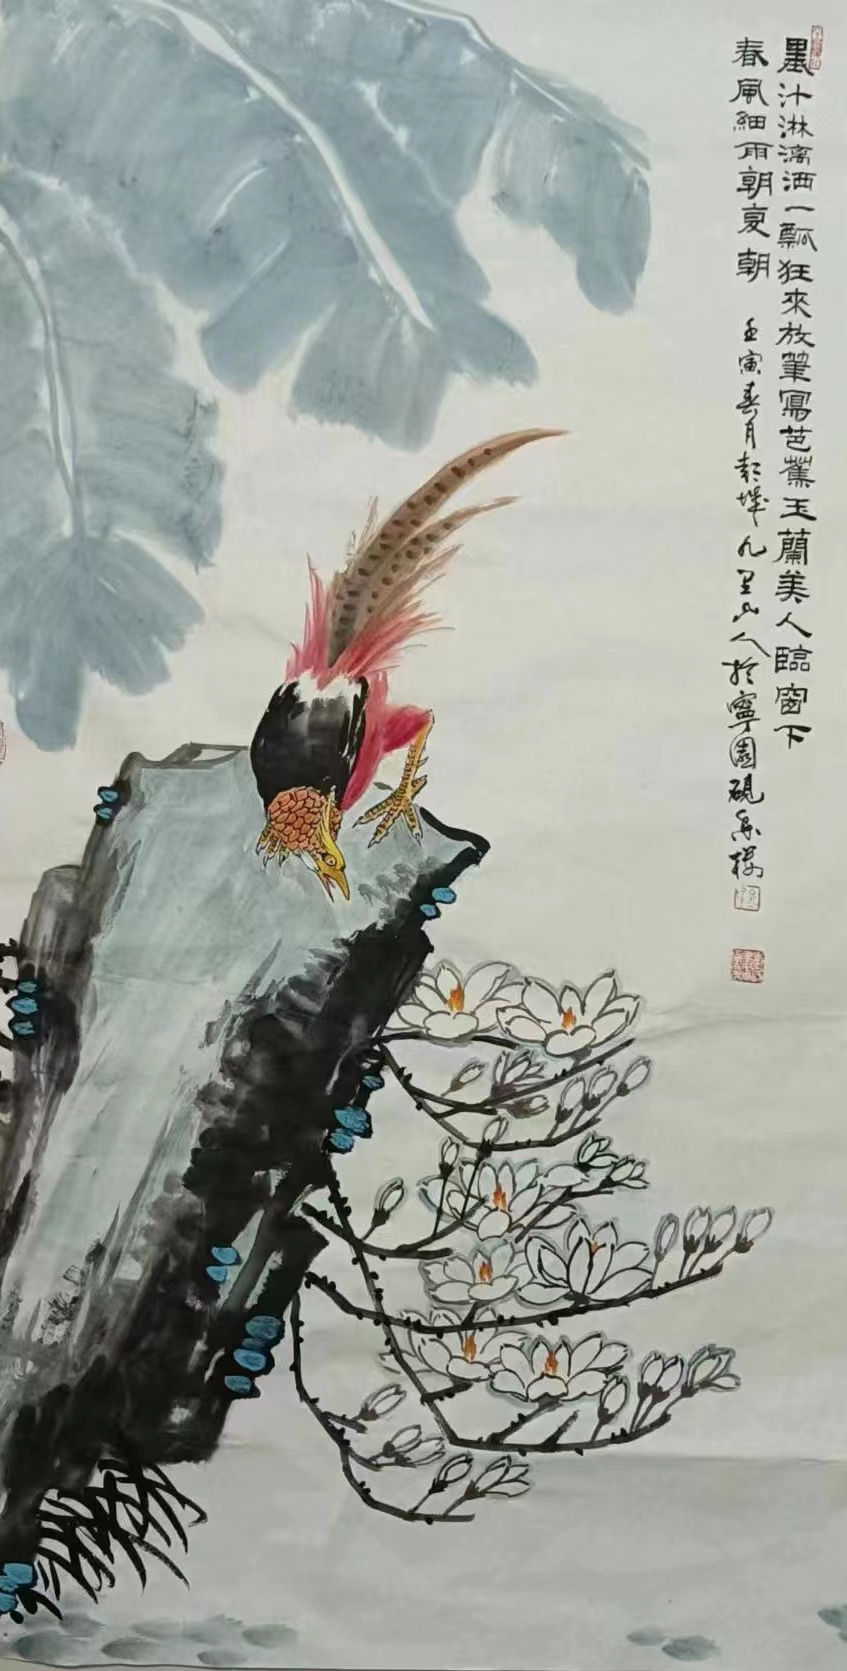 墨汁淋漓洒一瓢狂來放筆寫芭蕉玉蘭美人臨窗下
春風細雨朝夏朝
壬寅春月彭城九里山人於寧園硯魚樓